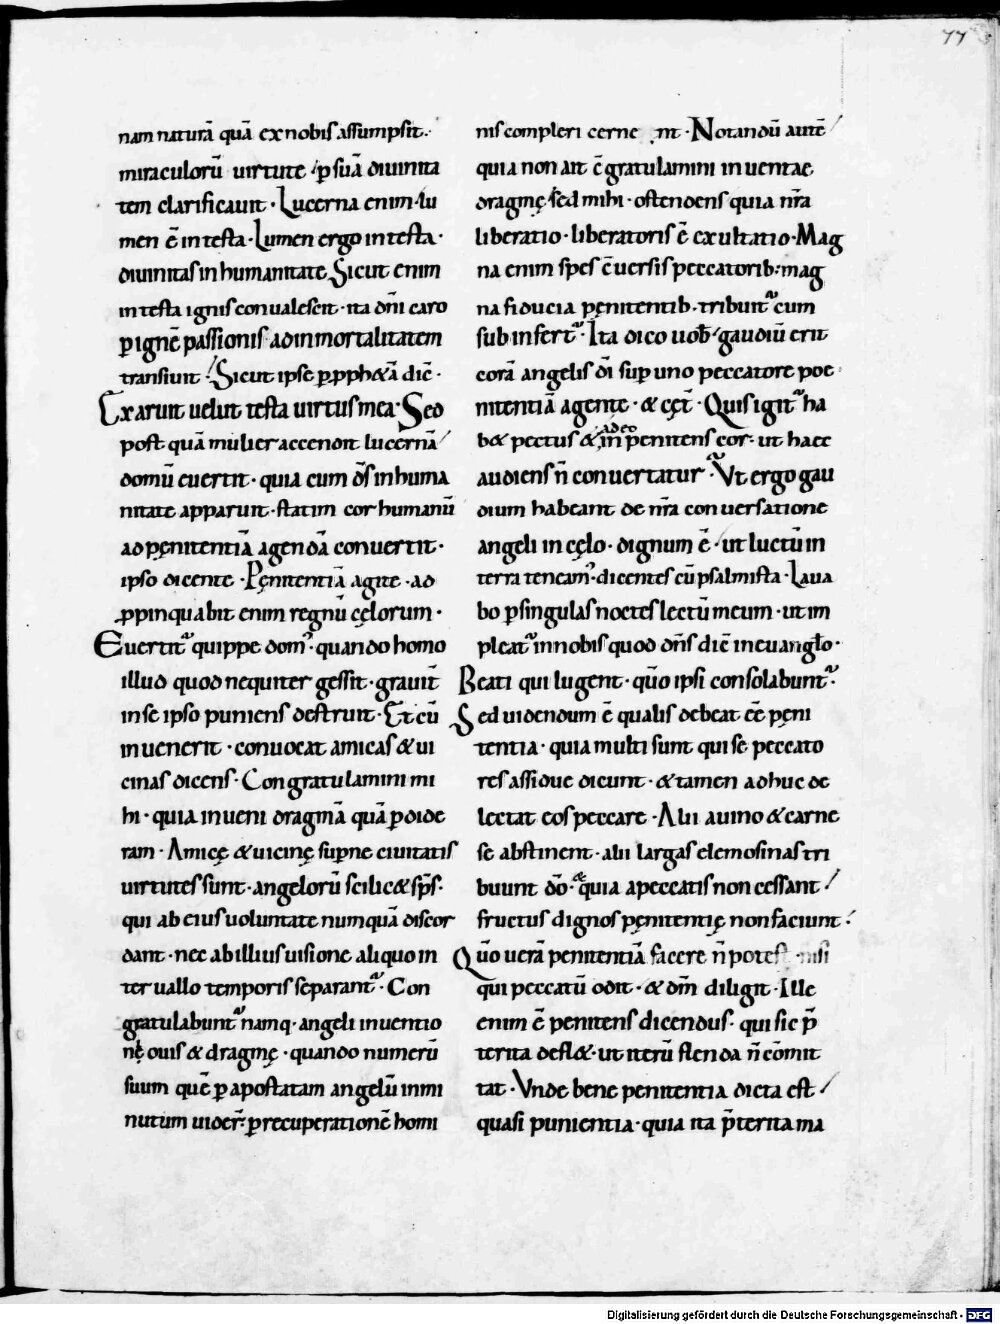 77
nam naturā quā ex nobis assumpsit·
miraculorū virtute / ꝑ suā diuinita
tem clarificauit · Lucerna enim · lu
men ē in testa · Lumen ergo in testa ·
diuinitas in humanitate · Sicut enim
in testa ignis conualescit · ita dn̄i caro
ꝑ ignē passionis · ad inmortalitatem
transiuit / Sicut ipse ꝑ pph&ā dic̄ ·
Exaruit uelut testa uirtus mea · Sed
post quā mulier accendit lucernā /
domū euertit · quia cum d̄s in huma
nitate apparuit · statim cor humanū
ad pęnitentiā agendā conuertit ·
ipso dicente · Pęnitentiā agite · ad
ꝓpinquabit enim regnū cęlorum ·
Euertit᷑ quippe dom᷒ · quando homo
illud quod nequiter gessit · grauit̄
in se ipso puniens destruit · Et cū
inuenerit · conuocat amicas & ui
cinas dicens · Congratulamini mi
hi · quia inueni dragmā quā ꝑdide
ram · Amicę & uicinę supne ciuitatis
uirtutes sunt · angelorū scilic& sp̄s ·
qui ab eius uoluntate numquā discor
dant · nec ab illius uisione aliquo in
teruallo temporis separant᷑ · Con
gratulabunt᷑ namq · angeli inuentio
nē ouis & dragmę · quando numerū
suum quē ꝑ apostatam angelū inmi
nutum uider̄ · ꝑ recuperationē homi
nis compleri cerne nt · Notandū autē /
quia non ait c̄gratulamini inuentae
dragmę / sed mihi · ostendens quia nr̄a
liberatio · liberatoris ē exultatio · Mag
na enim spes c̄uersis peccatorib: mag
na fiducia pęnitentib · tribuit᷑ cum
subinfert᷑ · Ita dico uob̄ / gaudiū erit
corā angelis dī suꝑ uno peccatore poe
nitentiā agente · & cęt̄ · Quis igit᷑ ha
b& pectus & adeo īnpenitens cor · ut haec
audiens n̄ conuertatur · Vt ergo gau
dium habeant de nr̄a conuersatione
angeli in cęlo · dignum ē · ut luctū in
terra teneam᷒ · dicentes cū psalmista · Laua
bo ꝑ singulas noctes lectū meum · ut im
pleat᷑ in nobis quod dn̄s dic̄ in euangl̄o ·
Beati qui lugent · qūo ipsi consolabunt᷑ ·
Sed uidendum ē qualis debeat ēe pęni
tentia · quia multi sunt qui se peccato
res assidue dicunt · & tamen adhuc de
lectat eos peccare · Alii a uino & carne
se abstinent · alii largas elemosinas tri
buunt d̄o · & quia a peccatis non cessant /
fructus dignos pęnitentię non faciunt /
Qūo uerā penitentiā facere n̄ potest · nisi
qui peccatū odit · & dm̄ diligit · Ille
enim ē penitens dicendus · qui sic p̄
terita defl& · ut iterū flenda n̄ cōmit
tat · Vnde bene penitentia dicta est /
quasi punientia · quia ita p̄terita ma
Digitalisierung gefördert durch die Deutsche Forschungsgemeinschaft - DFG